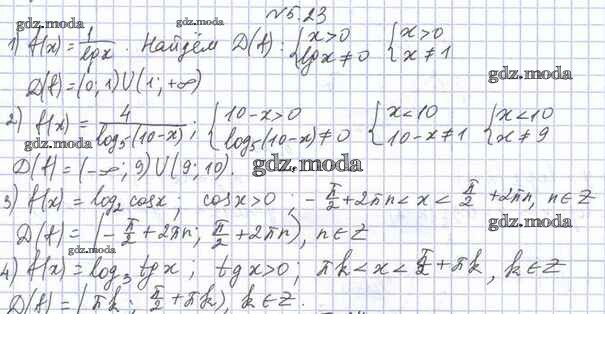 №5.23
gdz.moda gdz.moda
1) f(x)=1/lgx. Найдём D(f): {x>0 {x>0
{lgx≠0 {x≠1
gdz.moda
D(f)=(0;1)U(1;+∞)
2) f(x)=4/log₅(10-x); {10-x>0 {x<10 {x<10
{log₅(10-x)≠0 {10-x≠1 {x≠9
gdz.moda
D(f)=(-∞;9)U(9;10).
gdz.moda
3) f(x)=log₂cosx; cosx>0; -π/2+2πn<x<π/2+2πn, n∈Z
gdz.moda
D(f)=(-π/2+2πn; π/2+2πn), n∈Z
gdz.moda
4) f(x)=log₃tgx; tgx>0; πk<x<π/2+πk, k∈Z
D(f)=(πk; π/2+πk), k∈Z.